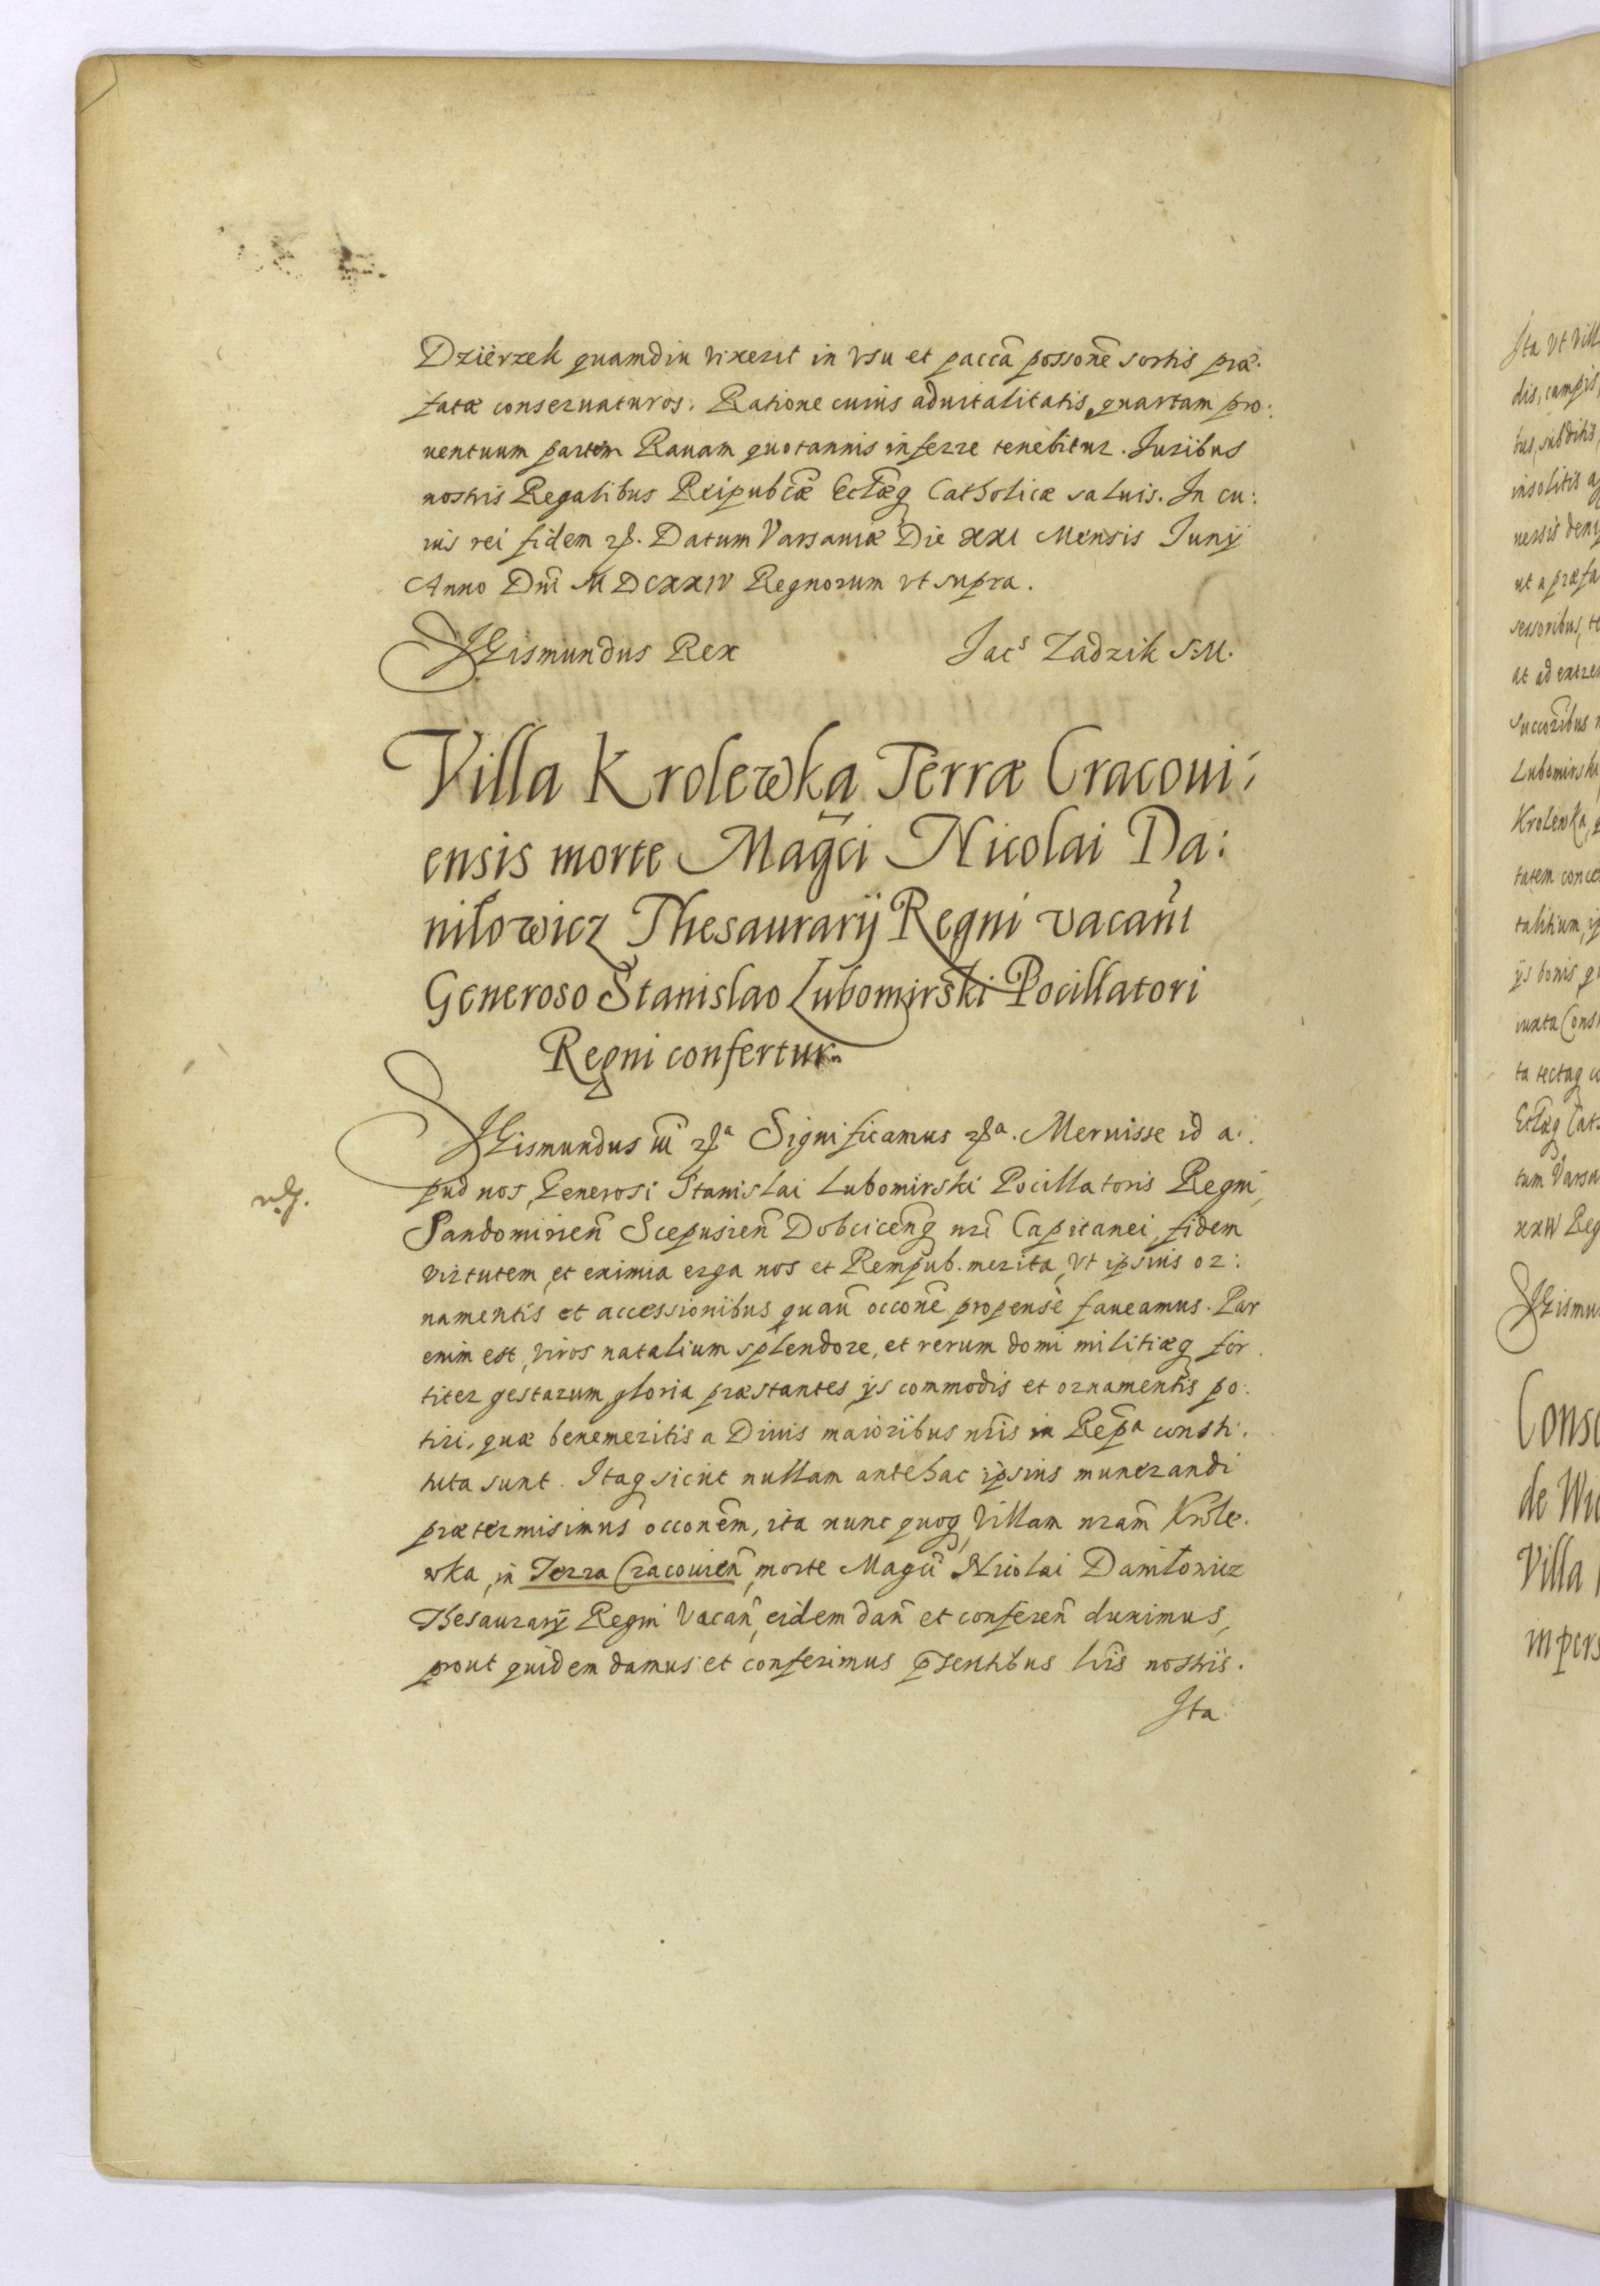 Dzierzek quamdiu vixerit in vsu et paccã possonẽ sortis præ.
fatæ conseruaturos. Ratione cuius aduitalitatis quartam pro:
uentuum partem Rauam quotannis inferre tenebitur. Iuribus
nostris Regalibus Reipubcæ Ecclæq Catholicæ saluis. In cu:
ius rei fidem Datum Varsauiæ Die XXI Mensis Iunij
Anno Dni MDCXXIV Regnorum vt supra.
Sigismundus Rex Jacs Zadzik S.M.
Villa Krolewka Terræ Cracoui:
ensis morte Magci Nicolai Da:
niłowicz Thesaurarij Regni vacañ
Generoso Stanislao Lubomirski Pocillatori
Regni confertur.
Sigismundus III Significamus Meruisse id a.
pud nos, Generosi Stanislai Lubomirski Pocillatoris Regni,
Sandomirieñ Scepusieñ Dobciceñq nri Capitanei, fidem
virtutem, et eximia erga nos et Rempub. merita, vt ipsius or:
namentis et accessionibus quauis occone propense faueamus. Par
enim est, viros natalium splendore, et rerum domi militiæq for.
titer gestarum gloria præstantes ijs commodis et ornamentis po.
tiri, quæ benemeritis a Diuis maioribus nris in Repa consti.
tuta sunt. Itaq sicut nullam antehac ipsius munerandi
prætermisimus occonem, ita nunc quoq Villam nram Krole.
wka, in Terra Cracouieñ, morte Magci Nicolai Daniłowicz
Thesaurarij Regni Vacañ, eidem dañ et confereñ duximus,
prout quidem damus et conferimus pñtibus lris nostris.
Ita
Ita vt Vill
dis, campis,
tus, subditis,
insolitis
uersis
ut a præfa
sessoribus, te
at ad extre
succoribus n
Lubomirski
Krolewka,
tatem conce
talitium,
ijs bonis
iuxta Const
ta tectaq
Ecclæq Cat
tum Varsa
XXIV Reg
Sigismu
Conse
de Wi
Villa
in pers